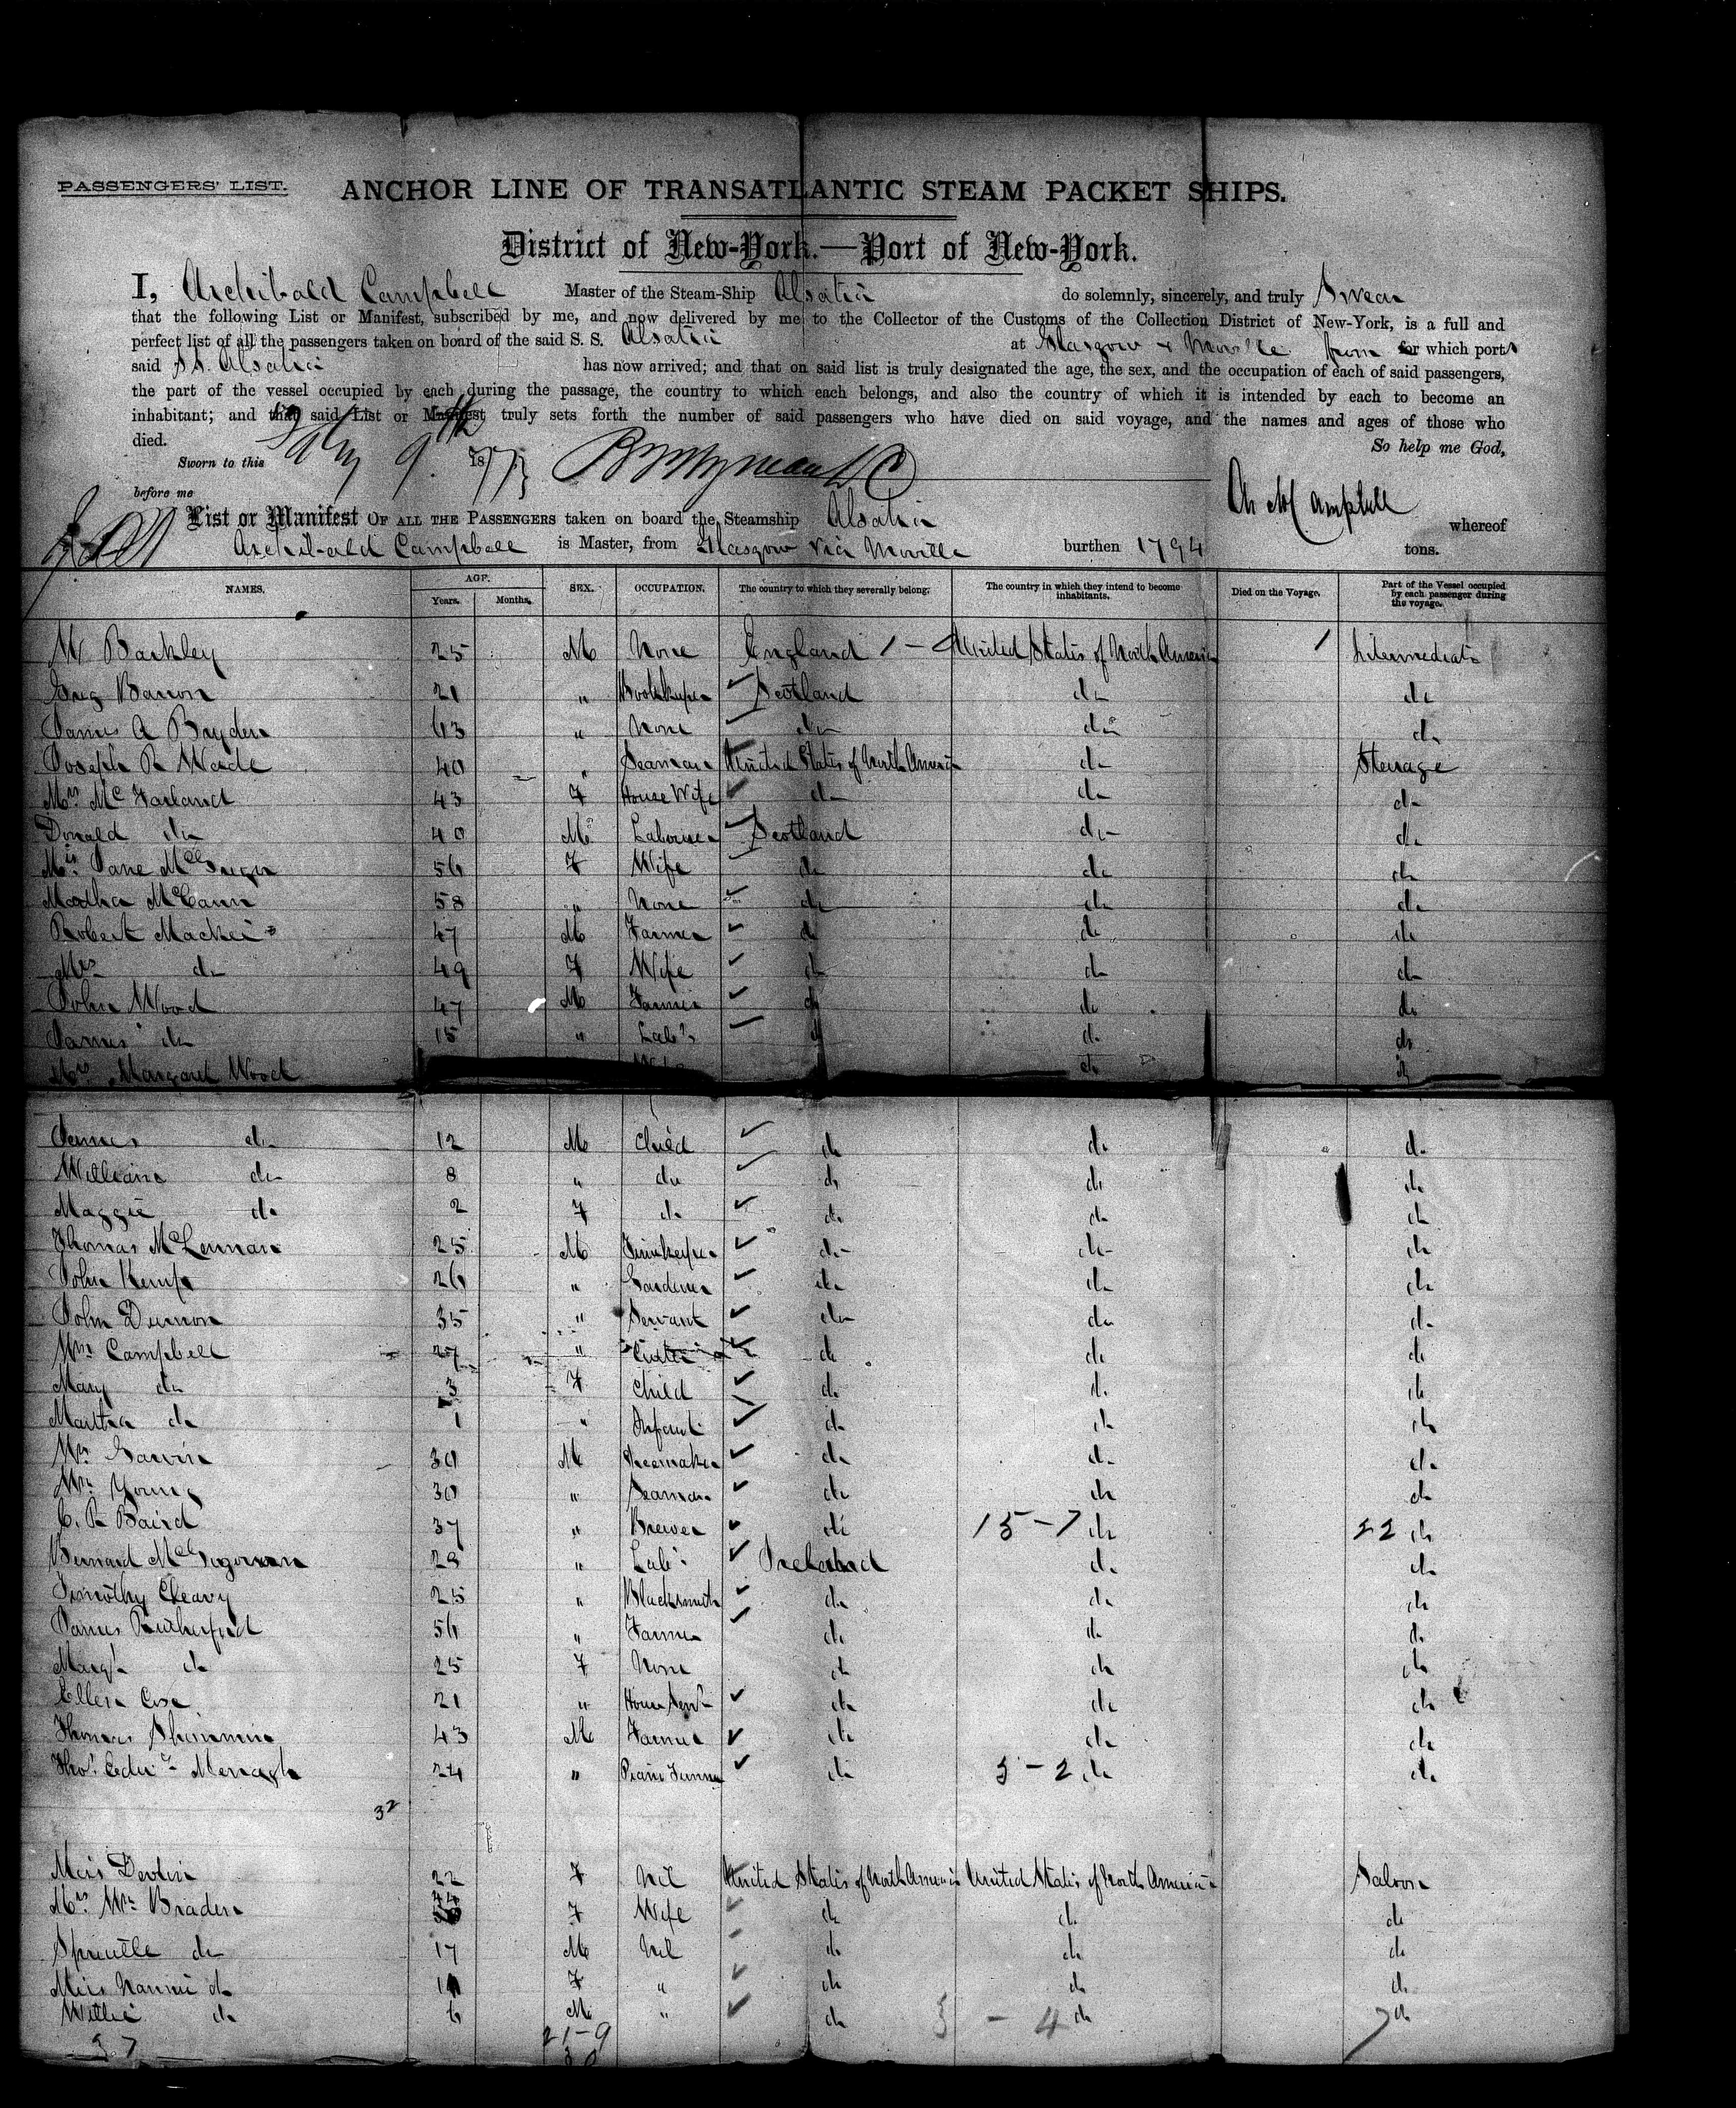 PASSENGERS' LIST.
ANCHOR LINE OF TRANSATLANTIC STEAM PACKET SHIPS.
District of New-York.—Port of New-York.
I, Archibald Campbell Master of the Steam-Ship Alsatia do solemnly, sincerely, and truly Swear
that the following List or Manifest, subscribed by me, and now delivered by me to the Collector of the Customs of the Collection District of New-York, is a full and
perfect list of all the passengers taken on board of the said S. S. Alsatia at Glasgow & Moville from which ports
said SS. Alsatia has now arrived; and that on said list is truly designated the age, the sex, and the occupation of each of said passengers,
the part of the vessel occupied by each during the passage, the country to which each belongs, and also the country of which it is intended by each to become an
inhabitant; and that said List or Manifest truly sets forth the number of said passengers who have died on said voyage, and the names and ages of those who
died.
So help me God,
Sworn to this 9th 1877
before me
Arch Campbell
List or Manifest OF ALL THE PASSENGERS taken on board the Steamship Alsatia whereof
Archibald Campbell is Master, from Glasgow via Moville burthen 1794 tons.
NAMES. AGE. Years. Months. SEX. OCCUPATION. The country to which they severally belong. The country in which they intend to become inhabitants. Died on the Voyage. Part of the Vessel occupied by each passenger during the voyage.
Barkley 25 M None England 1 - United States of North America / Intermediate
Barron 21 " Bookkeeper Scotland do do
James A Bryden 63 " None do do do
Joseph R Wade 40 " Seaman United States of North America do Steerage
Mrs McFarland 43 F House Wife do do do
Donald do 40 M Labourer Scotland do do
Mrs Jane McGregor 56 F Wife do do do
Martha McCann 58 " None do do do
Robert Mackie 47 M Farmer do do do
Mrs do 49 F Wife do do do
John Wood 47 M Farmer do do do
James do 15 " Labr do do do
Mrs Margaret Wood do do
James do 12 M Child do do do
William do 8 " do do do do
Maggie do 2 F do do do do
Thomas McLennan 25 M do do do
John Kemp 26 " Gardener do do do
John 35 " Servant do do do
Wm Campbell 27 " do do do
Mary do 3 F Child do do do
Martha do 1 " Infant do do do
Wm 30 M Shoemaker do do do
Wm Young 30 " Seaman do do do
C. R Baird 37 " Brewer do 15-7 do 22 do
Bernard 29 " Labr Ireland do do
Timothy Cleary 25 " Blacksmith do do do
James Rutherford 56 " Farmer do do do
Margt do 25 F None do do do
Ellen 21 " House Servt do do do
Thomas 43 M Farmer do do do
Thos Edwd 24 " do 3-2 do do
32
Miss Devlin 22 F Nil United States of North America United States of North America Saloon
Mrs Wm Braden 44 F Wife do do do
do 17 M Nil do do do
Miss Nannie do 11 F " do do do
Willie do 6 M " do 3 - 4 do 7 do
37 21-9